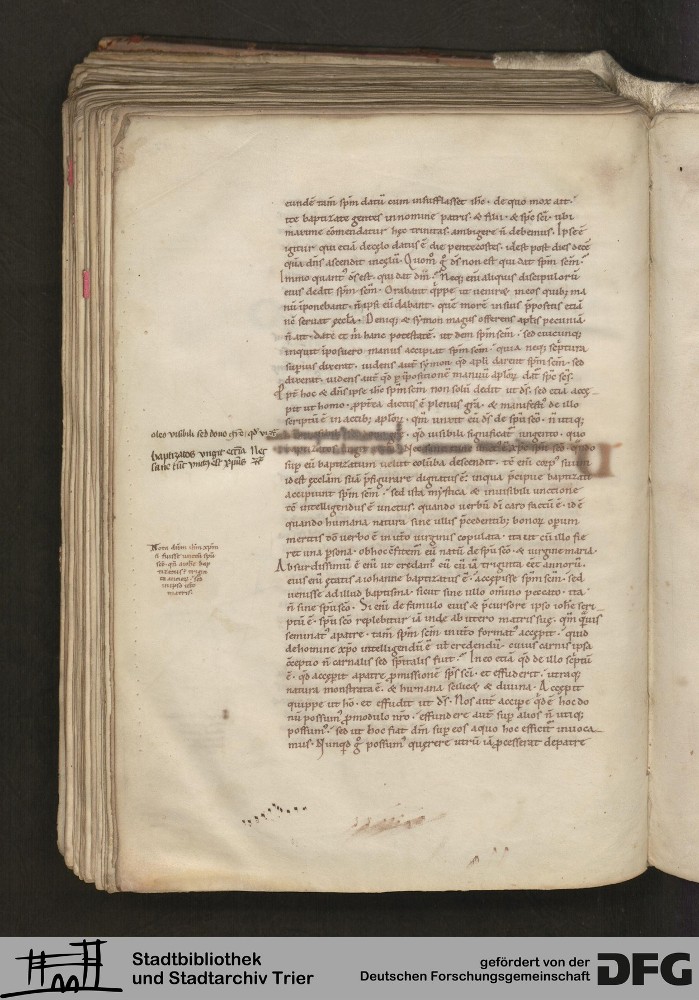 eundē tam̄ spm̄ datū cum insufflasset ihc̄ · de quo mox ait ·
ite baptizate gentes in nomine patris · & filii · & sps̄ sc̄i · ubi
maxime cōmendatur hęc trinitas · ambigere n̄ debemus · Ipse ē
igitur qui etiā de cęlo datus ē die pentecostes · id est post dies decē
quā dn̄s ascendit in cęlū · Quom̊ g̊ ds̄ non est qui dat spm̄ sc̄m ·
Immo quant' ds̄ est · qui dat dm̄ · Neq; eni aliquis discipulorū
eius dedit spm̄ sc̄m · Orabant q̄ppe ut veniret in eos quib; ma
nū īponebant · n̄ ipsi eū dabant · quē morē in suis p̄positis etiā
nc̄ servat ęccl̄a · Deniq; & symon magus offerens aplis pecuniā
n̄ ait · date et m̄ hanc potestatē · ut dem spm̄ sc̄m · sed cuicunq;
inquit īposuero manus accipiat spm̄ sc̄m · quia neq; sc̄ptura
superius dixerat · videns aut̄ symon qd̄ apli darent spm̄ sc̄m · sed
dixerat · videns aut̄ qd̄ p īpositionē manuū aplor̄ dari sps̄ sc̄s ·
Ppt̄ hoc & dn̄s ipse ihc̄ spm̄ sc̄m non solū dedit ut ds̄ · sed etiā accę
pit ut homo · propterea dictus ē plenus gr̄a · & manifesti' de illo
scriptū ē in actib; aplor̄ · qm̄ unxit eū ds̄ de spū sc̄o · n̄ utiq;
oleo visibili sed dono gr̄ę · qd̄ visibili significatur ungento · quo
baptizatos ungit ęccl̄a
sup eū baptizatum velut colūba descendit · tc̄ eni corp' suum
id est ęccl̄am suā p̄figurare dignatus ē · in qua p̄cipue baptizati
accipiunt spm̄ sc̄m · sed ista mystica & invisibili unctione
tc̄ intelligendus ē unctus · quando verbū di caro factū ē · id ē
quando humana natura sine ullis p̄cedentib; bonor̄ operum
meritis dō verbo ē in utero virginis copulata · ita ut cū illo fie
ret una p̄sona · ob hoc ēfitem̄ eū natū de spū sc̄o · & virgine maria ·
Absurdissimū ē eni ut credam̄ eū cū iā triginta eēt annorū ·
eius eni ętatis a iohanne baptizatus ē · accępisse spm̄ sc̄m · sed
venisse ad illud baptisma sicut sine ullo om̄ino peccato · ita
n̄ sine spū sc̄o · Si eni de famulo eius & p̄cursore ipso iohe scri
ptū ē · spū sc̄o replebitur iā inde ab utero matris suę · qm̄ q̄uis
seminat' a patre · tam̄ spm̄ sc̄m in utero format' accępit · quid
de homine xp̄o intelligendū ē vl̄ credendū · cuius carnis ipsa
cōceptio n̄ carnalis sed sp̄italis fuit · In eo etiā qd̄ de illo sc̄ptū
ē · qd̄ accępit a patre promissionē sps̄ sc̄i · et effuderit · utraq;
natura monstrata ē · & humana scilicet & divina · Accępit
quippe ut hō · et effudit ut ds̄ · Nos aut̄ accipe qd̄ē hoc do
nū possum' p modulo nr̄o · effundere aut̄ sup alios n̄ utiq;
possum' · sed ut hoc fiat dm̄ sup eos a quo hoc efficit' invoca
mus · Nunqd̄ g̊ possum' quęrere utrū iā p̄cesserat de patre
oleo visibili sed dono gr̄e · qd̄
baptizatos ungit eccīa Nec
sane tūc unctus est xp̄us
Nota dn̄m ihm xp̄m
n̄ fuisse unctū spū
sc̄o · qn̄ fuisse bap
tizatus ē triginta
annorū · sed
in ipso utero
matris ·
Stadtbibliothek
und Stadtarchiv Trier
gefördert von der
Deutschen Forschungsgemeinschaft
DFG